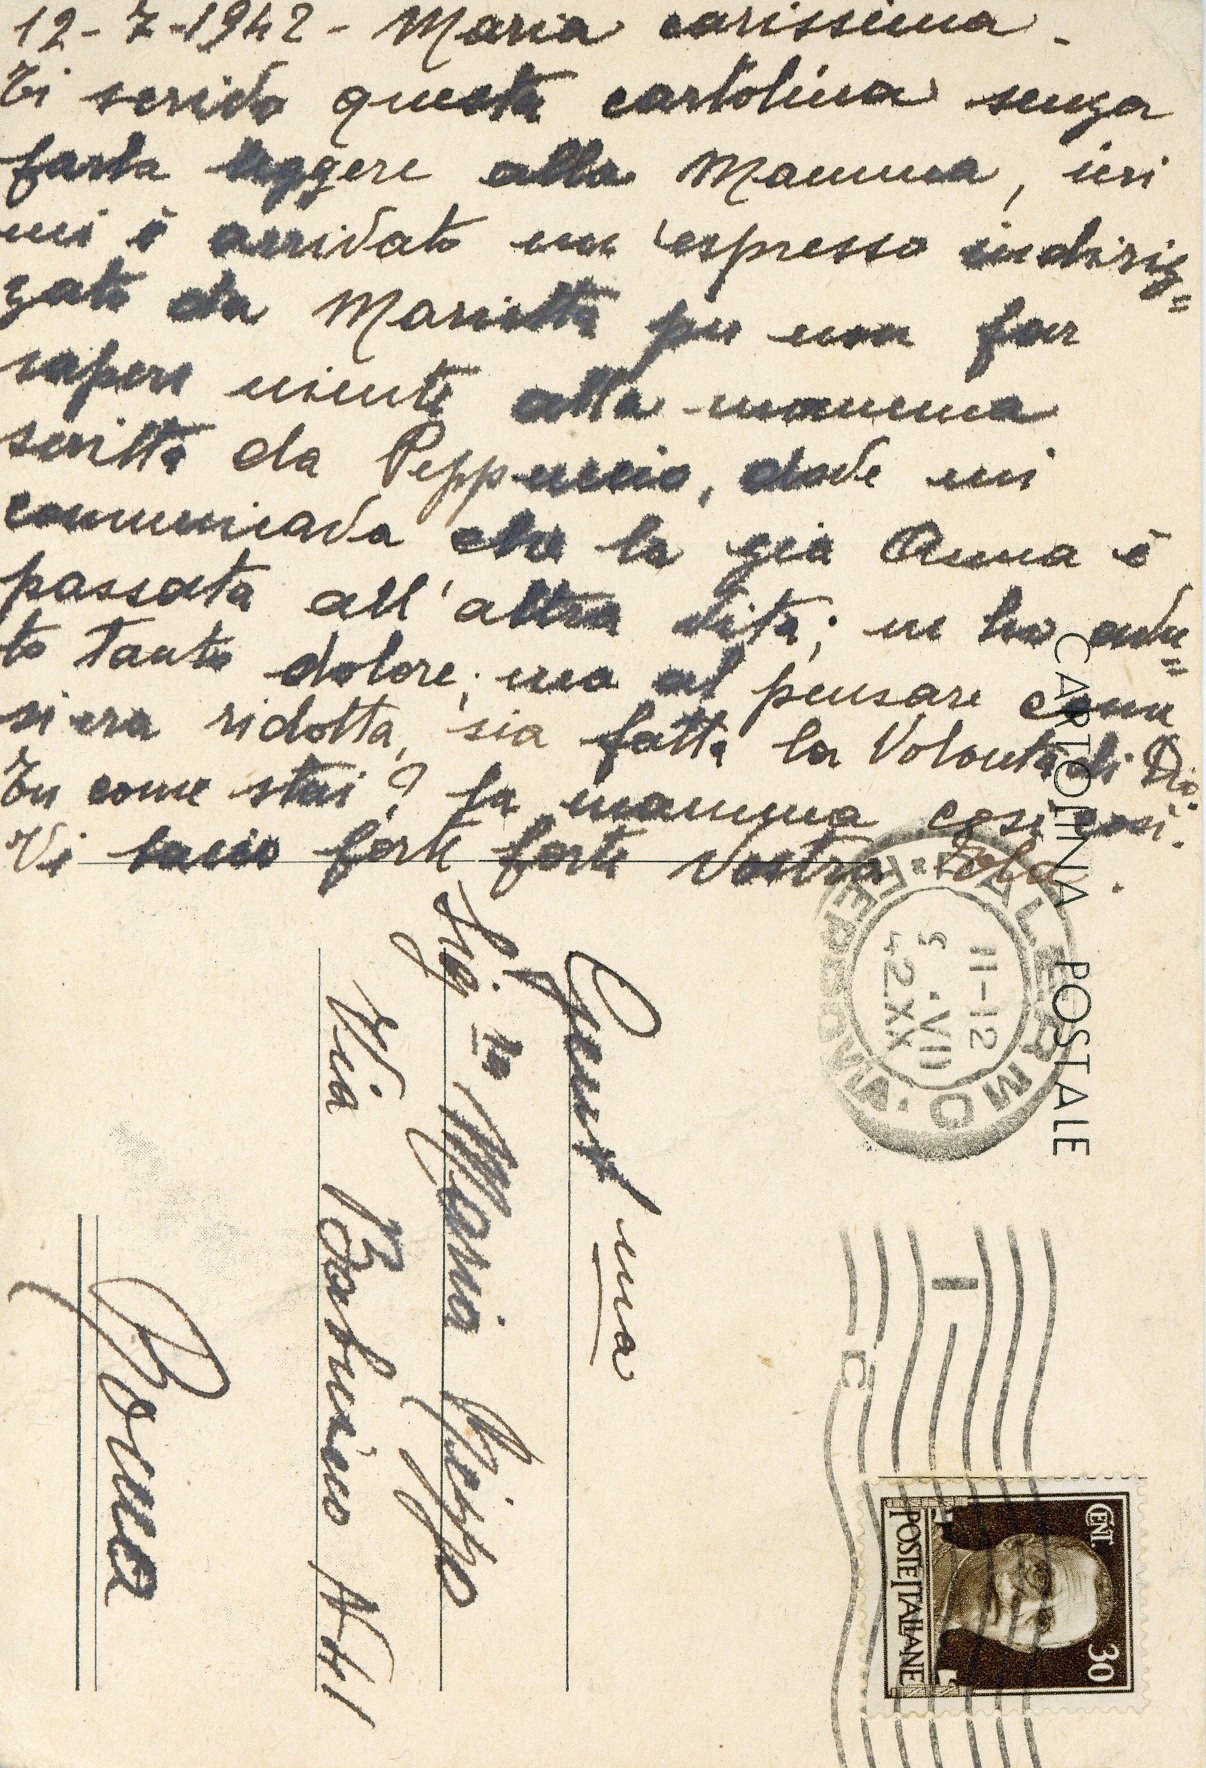 12-7-1942- Maria carissima -
Ti scrivo questa cartolina senza
farla leggere alla Mamma, ieri
mi è arrivato un'espresso indiriz=
zato da Marietta per non far
sapere niente alla mamma
scritta da Peppuccio, dove mi
comunicava che la zia Anna è
passata all'altra vita; ne ho avu=
to tanto dolore; ma al pensare come
si era ridotta, sia fatta la Volontà di Dio.
Tu come stai? La mamma così così.
Vi bacio forte forte Vostra
CARTOLINA POSTALE
PALERMO FERROVIA
11-12
9.VII
42.XX
Gent.ma
Sig.na Maria Rizzo
Via Babuino N 41
Roma
CENT. 30
POSTE ITALIANE